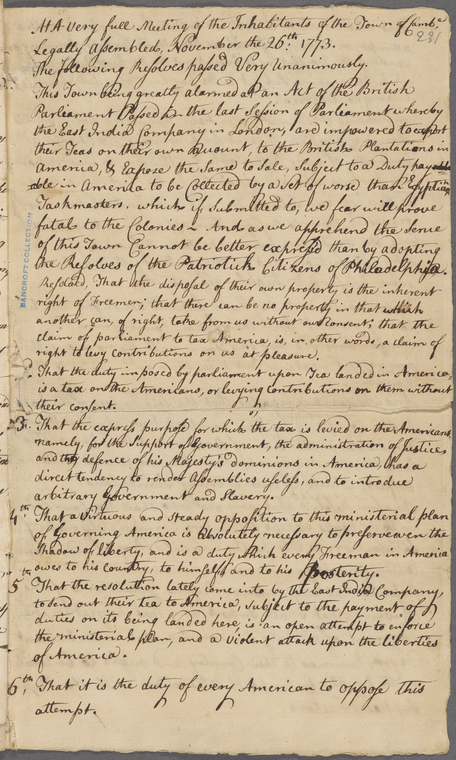 At A very full Meeting of the Inhabitants of the Town of Camb.e
231
Legally assembled, November the 26.th 1773.
The following Resolves passed Very Unanimously.
This Town being greatly alarmed at an Act of the British
Parliament Passed in the last Session of Parliament whereby
the East India Company in London, are impowered to export
their Teas on their own Account, to the British Plantations in
America, & Expose the Same to Sale, Subject to a Duty pay
able in America to be Collected by a Set of worse than Egyptian
Taskmasters. which if Submitted to, we fear will prove
fatal to the Colonies – And as we apprehend the Sense
of this Town Cannot be better expressed than by adopting
the Resolves of the Patriotick Citizens of Philadelphia.
Resolved, That the disposal of their own property is the inherent
right of Freemen; that there can be no property in that which
another can, of right, take from us without our consent; that the
claim of parliament to tax America, is, in other words, a claim of
right to levy contributions on us at pleasure.
2 That the duty imposed by parliament upon Tea landed in America,
is a tax on the Americans, or levying contributions on them without
their consent.
3. That the express purpose for which the tax is levied on the Americans,
namely, for the Support of Government, the administration of Justice
and the defence of his Majesty's dominions in America, has a
direct tendency to render Assemblies useless, and to introduce
arbitrary Government and Slavery.
4th. That a virtuous and steady opposition to this ministerial plan
of Governing America is absolutely necessary to preserve even the
Shadow of liberty, and is a duty which every Freeman in America
owes to his Country, to himself and to his Posterity.
5th That the resolution lately come into by the East India Company,
to send out their tea to America, subject to the payment of
duties on its being landed here, is an open attempt to enforce
the ministerial plan, and a violent attack upon the liberties
of America.
6th. That it is the duty of every American to oppose this
attempt.
BANCROFT COLLECTION